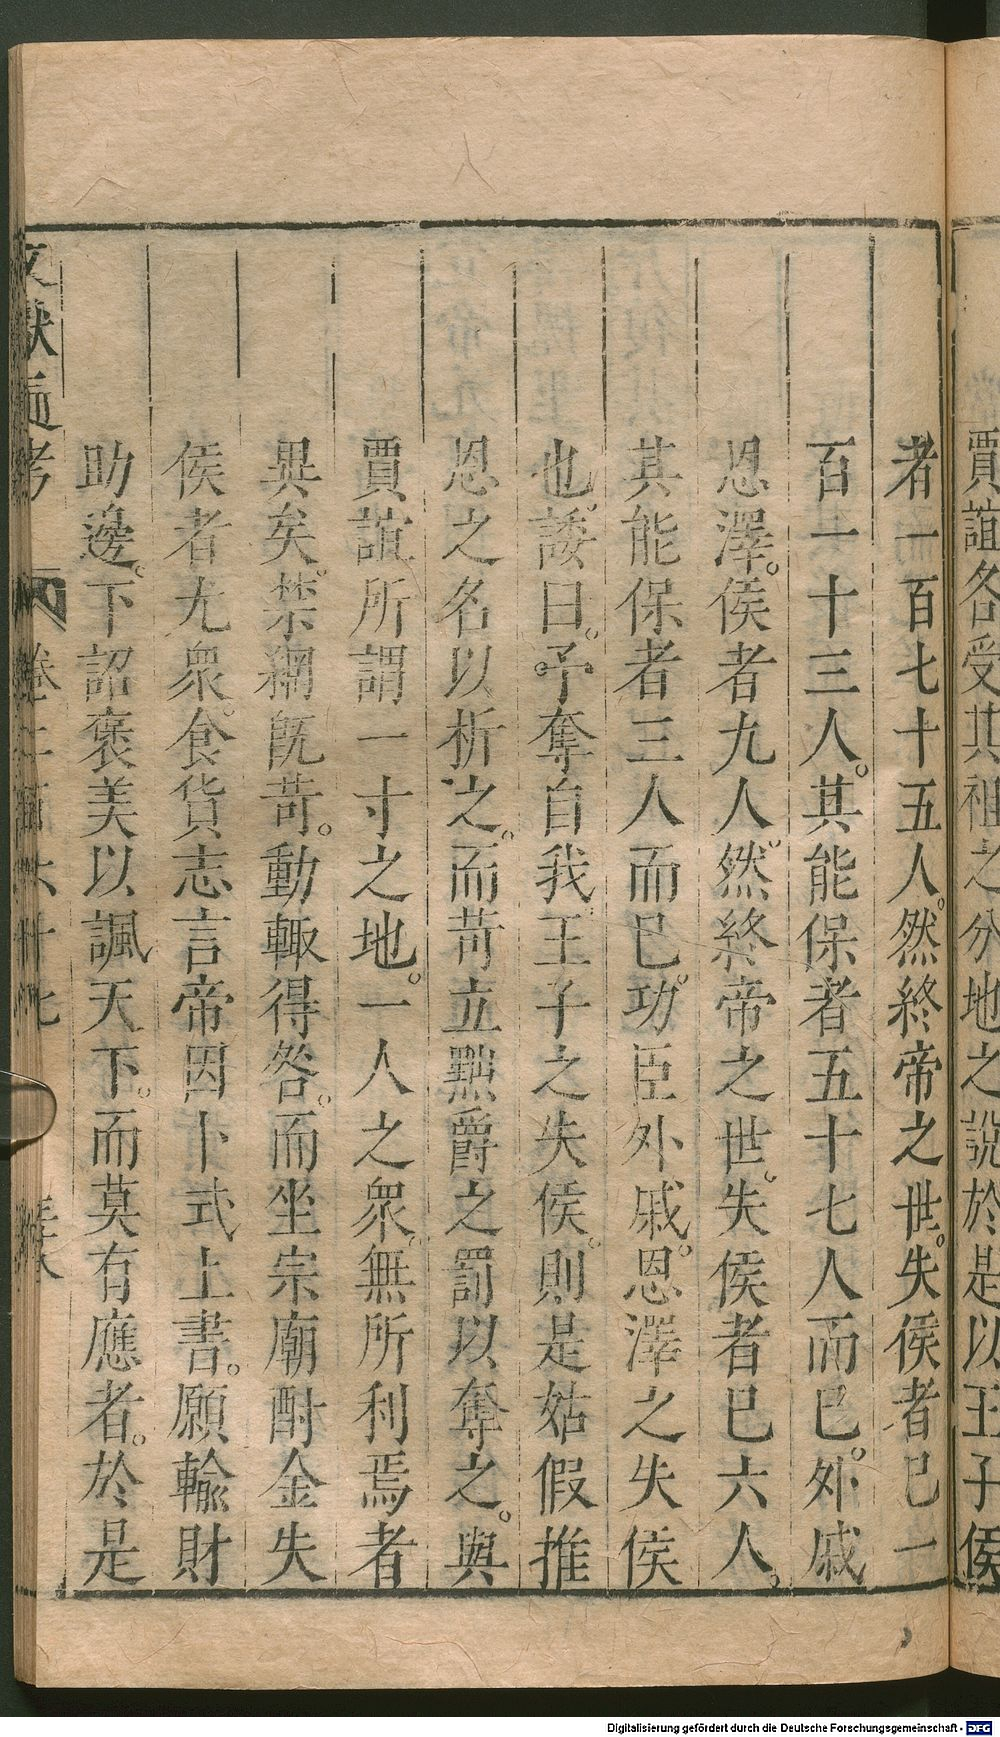 賈誼各受其祖之分地之說於是以王子侯
者一百七十五人。然終帝之世。失侯者已一
百一十三人。其能保者五十七人而已。外戚
恩澤。侯者九人。然終帝之世。失侯者已六人。
其能保者三人而已。功臣外戚。恩澤之失侯
也。諉曰。予奪自我。王子之失侯。則是姑假推
恩之名以析之。而苛立黜爵之罰以奪之。與
賈誼所謂一寸之地。一人之衆。無所利焉者
異矣。禁網旣苛。動輙得咎。而坐宗廟酎金失
侯者尤衆。食貨志言帝因卜式上書。願輸財
助邊。下詔褒美以諷天下。而莫有應者。於是
文獻通考 卷二百六十七
Digitalisierung gefördert durch die Deutsche Forschungsgemeinschaft - DFG